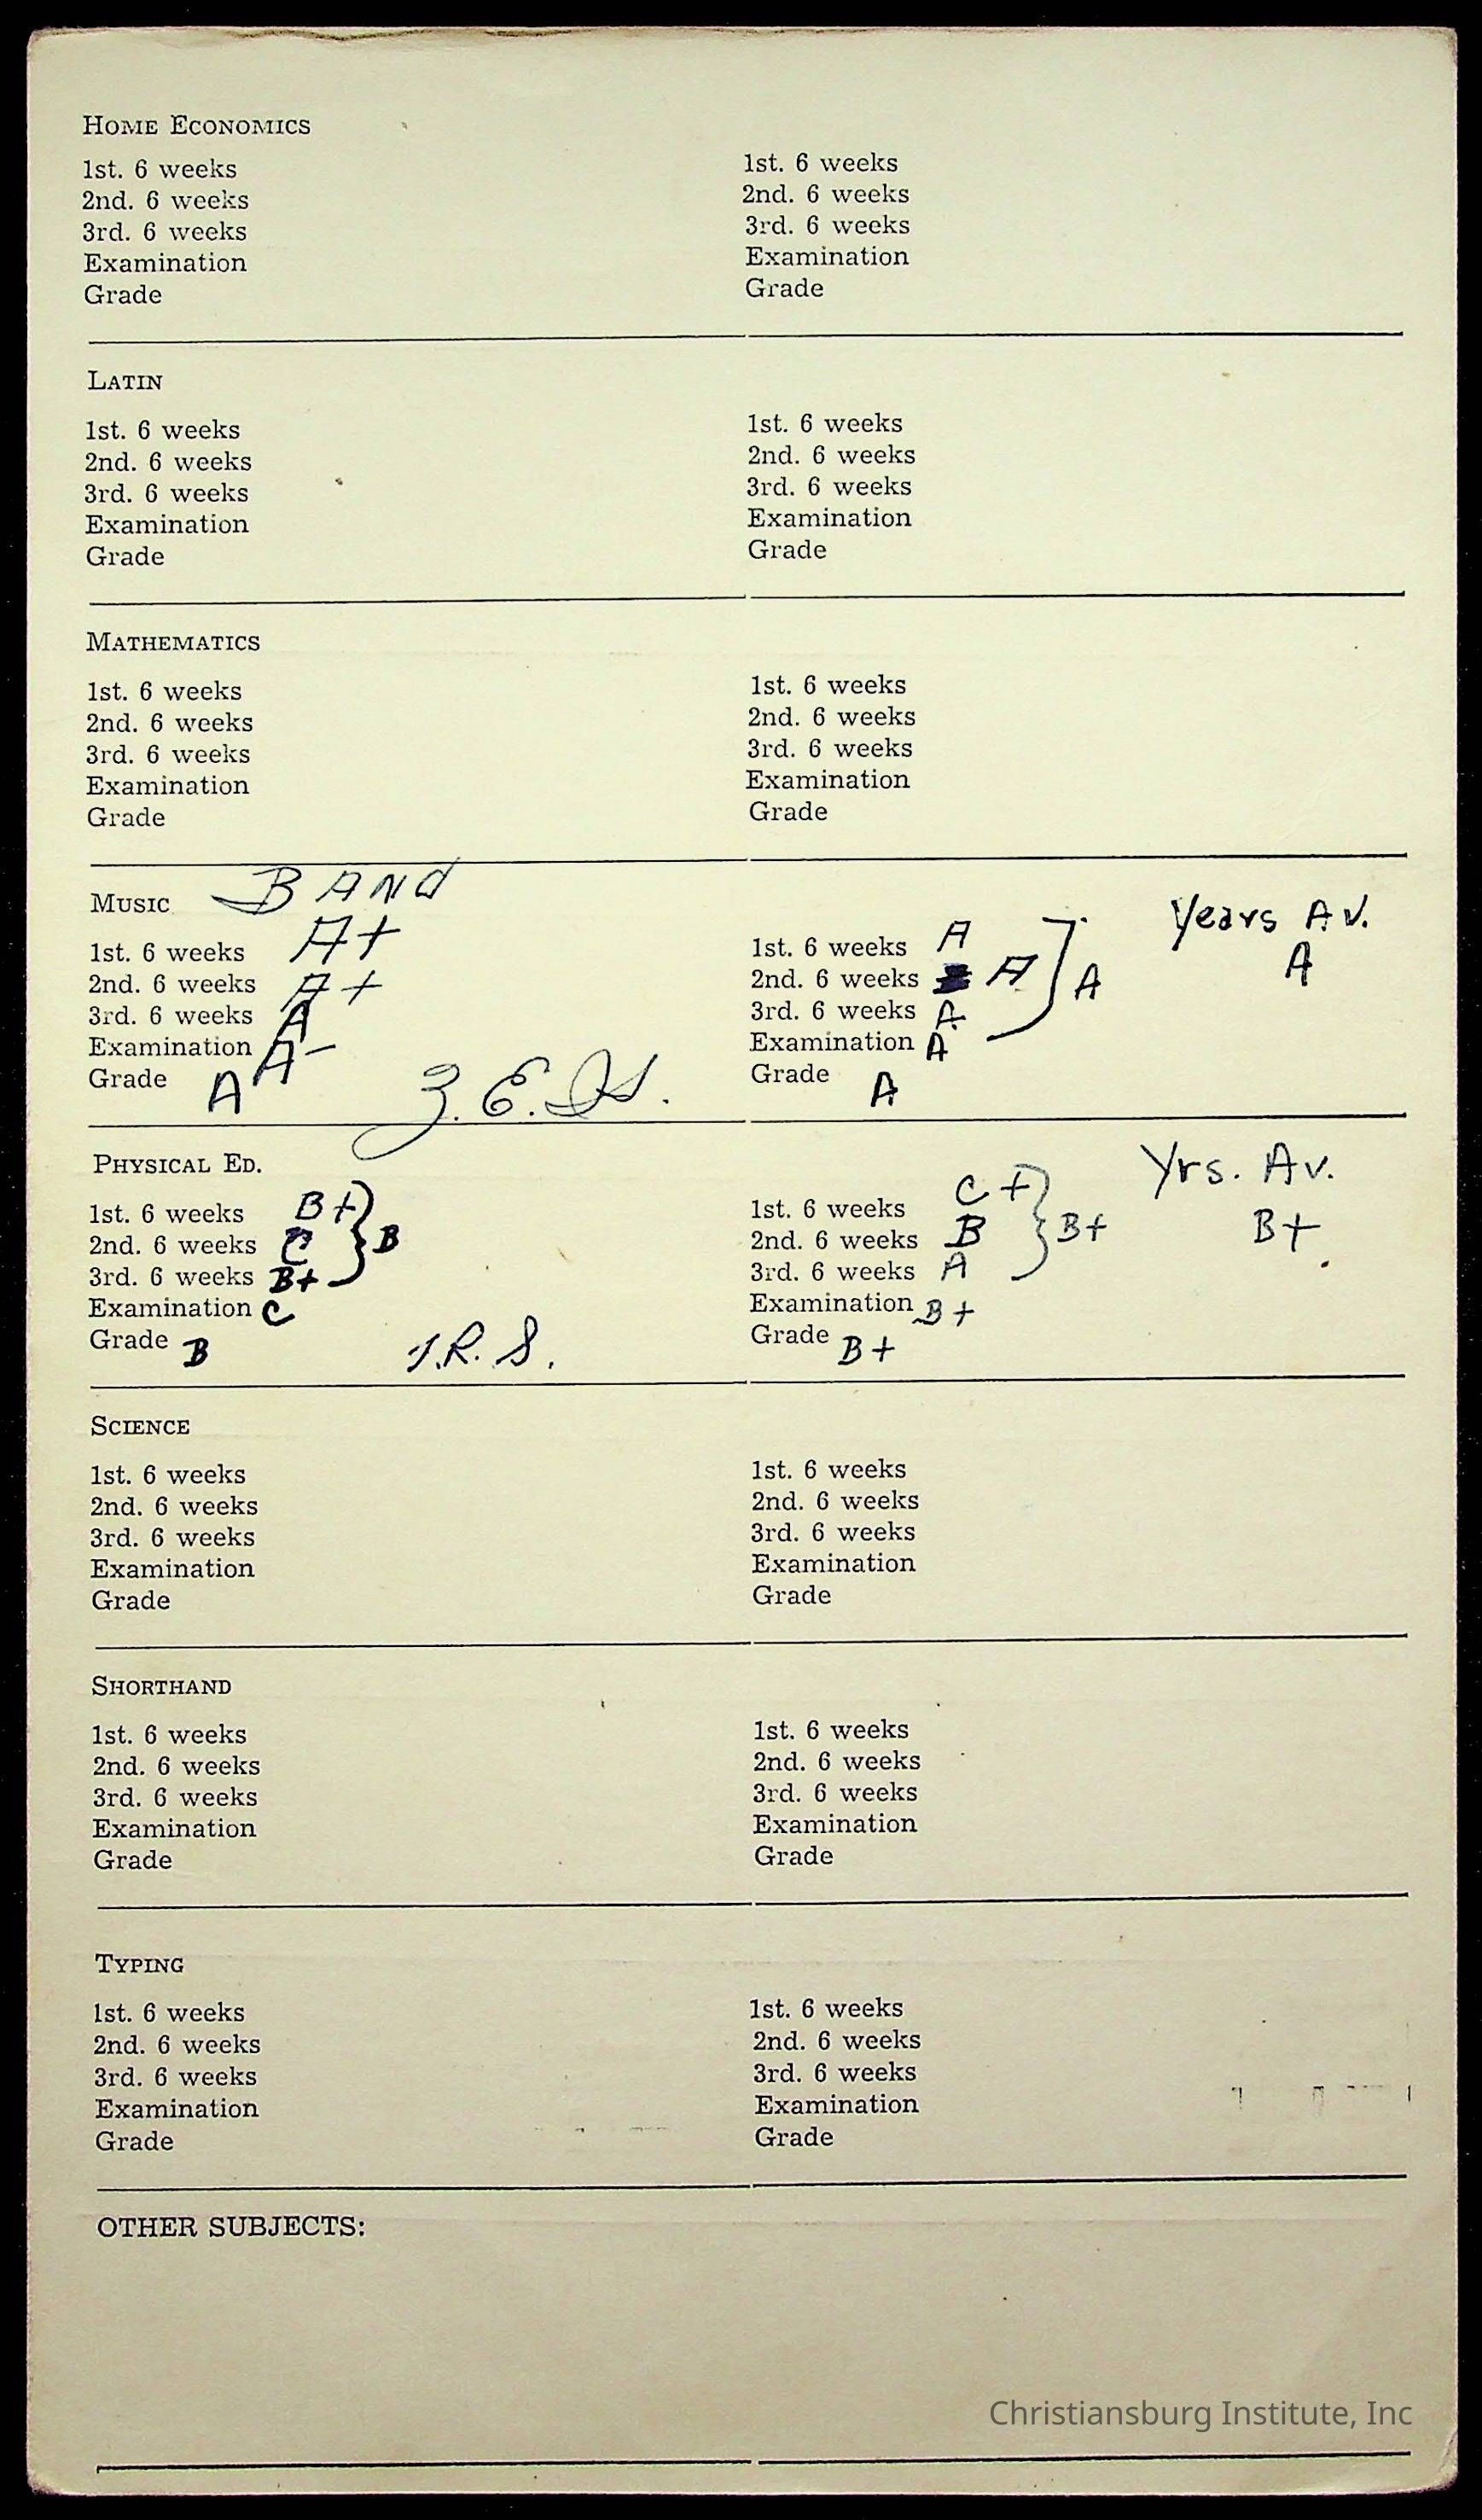 HOME ECONOMICS
1st. 6 weeks 1st. 6 weeks
2nd. 6 weeks 2nd. 6 weeks
3rd. 6 weeks 3rd. 6 weeks
Examination Examination
Grade Grade
LATIN
1st. 6 weeks 1st. 6 weeks
2nd. 6 weeks 2nd. 6 weeks
3rd. 6 weeks 3rd. 6 weeks
Examination Examination
Grade Grade
MATHEMATICS
1st. 6 weeks 1st. 6 weeks
2nd. 6 weeks 2nd. 6 weeks
3rd. 6 weeks 3rd. 6 weeks
Examination Examination
Grade Grade
MUSIC BAND Years Av.
1st. 6 weeks A+ 1st. 6 weeks A A
2nd. 6 weeks A+ 2nd. 6 weeks A A
3rd. 6 weeks A 3rd. 6 weeks A
Examination A- Examination A
Grade A Grade A
PHYSICAL ED. Yrs. Av.
1st. 6 weeks B+ 1st. 6 weeks C+
2nd. 6 weeks C B 2nd. 6 weeks B B+ B+
3rd. 6 weeks B+ 3rd. 6 weeks A
Examination C Examination B+
Grade B J.R.S. Grade B+
SCIENCE
1st. 6 weeks 1st. 6 weeks
2nd. 6 weeks 2nd. 6 weeks
3rd. 6 weeks 3rd. 6 weeks
Examination Examination
Grade Grade
SHORTHAND
1st. 6 weeks 1st. 6 weeks
2nd. 6 weeks 2nd. 6 weeks
3rd. 6 weeks 3rd. 6 weeks
Examination Examination
Grade Grade
TYPING
1st. 6 weeks 1st. 6 weeks
2nd. 6 weeks 2nd. 6 weeks
3rd. 6 weeks 3rd. 6 weeks
Examination Examination
Grade Grade
OTHER SUBJECTS:
Christiansburg Institute, Inc